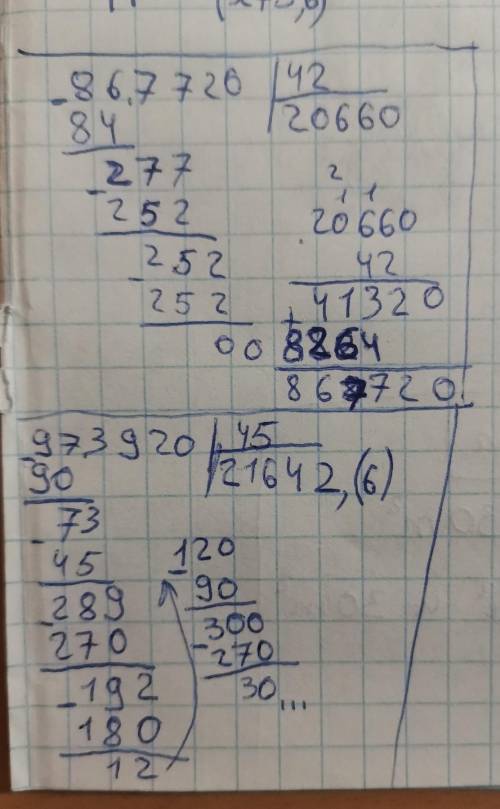 - 867720 | 42
84 20660
- 277
252
- 252
252
00
2
1 1
20660
42
+ 41320
8264
867720
- 973920 | 45
90 21642,(6)
- 73
45
- 289
270
- 192
180
12
- 120
90
- 300
270
30...